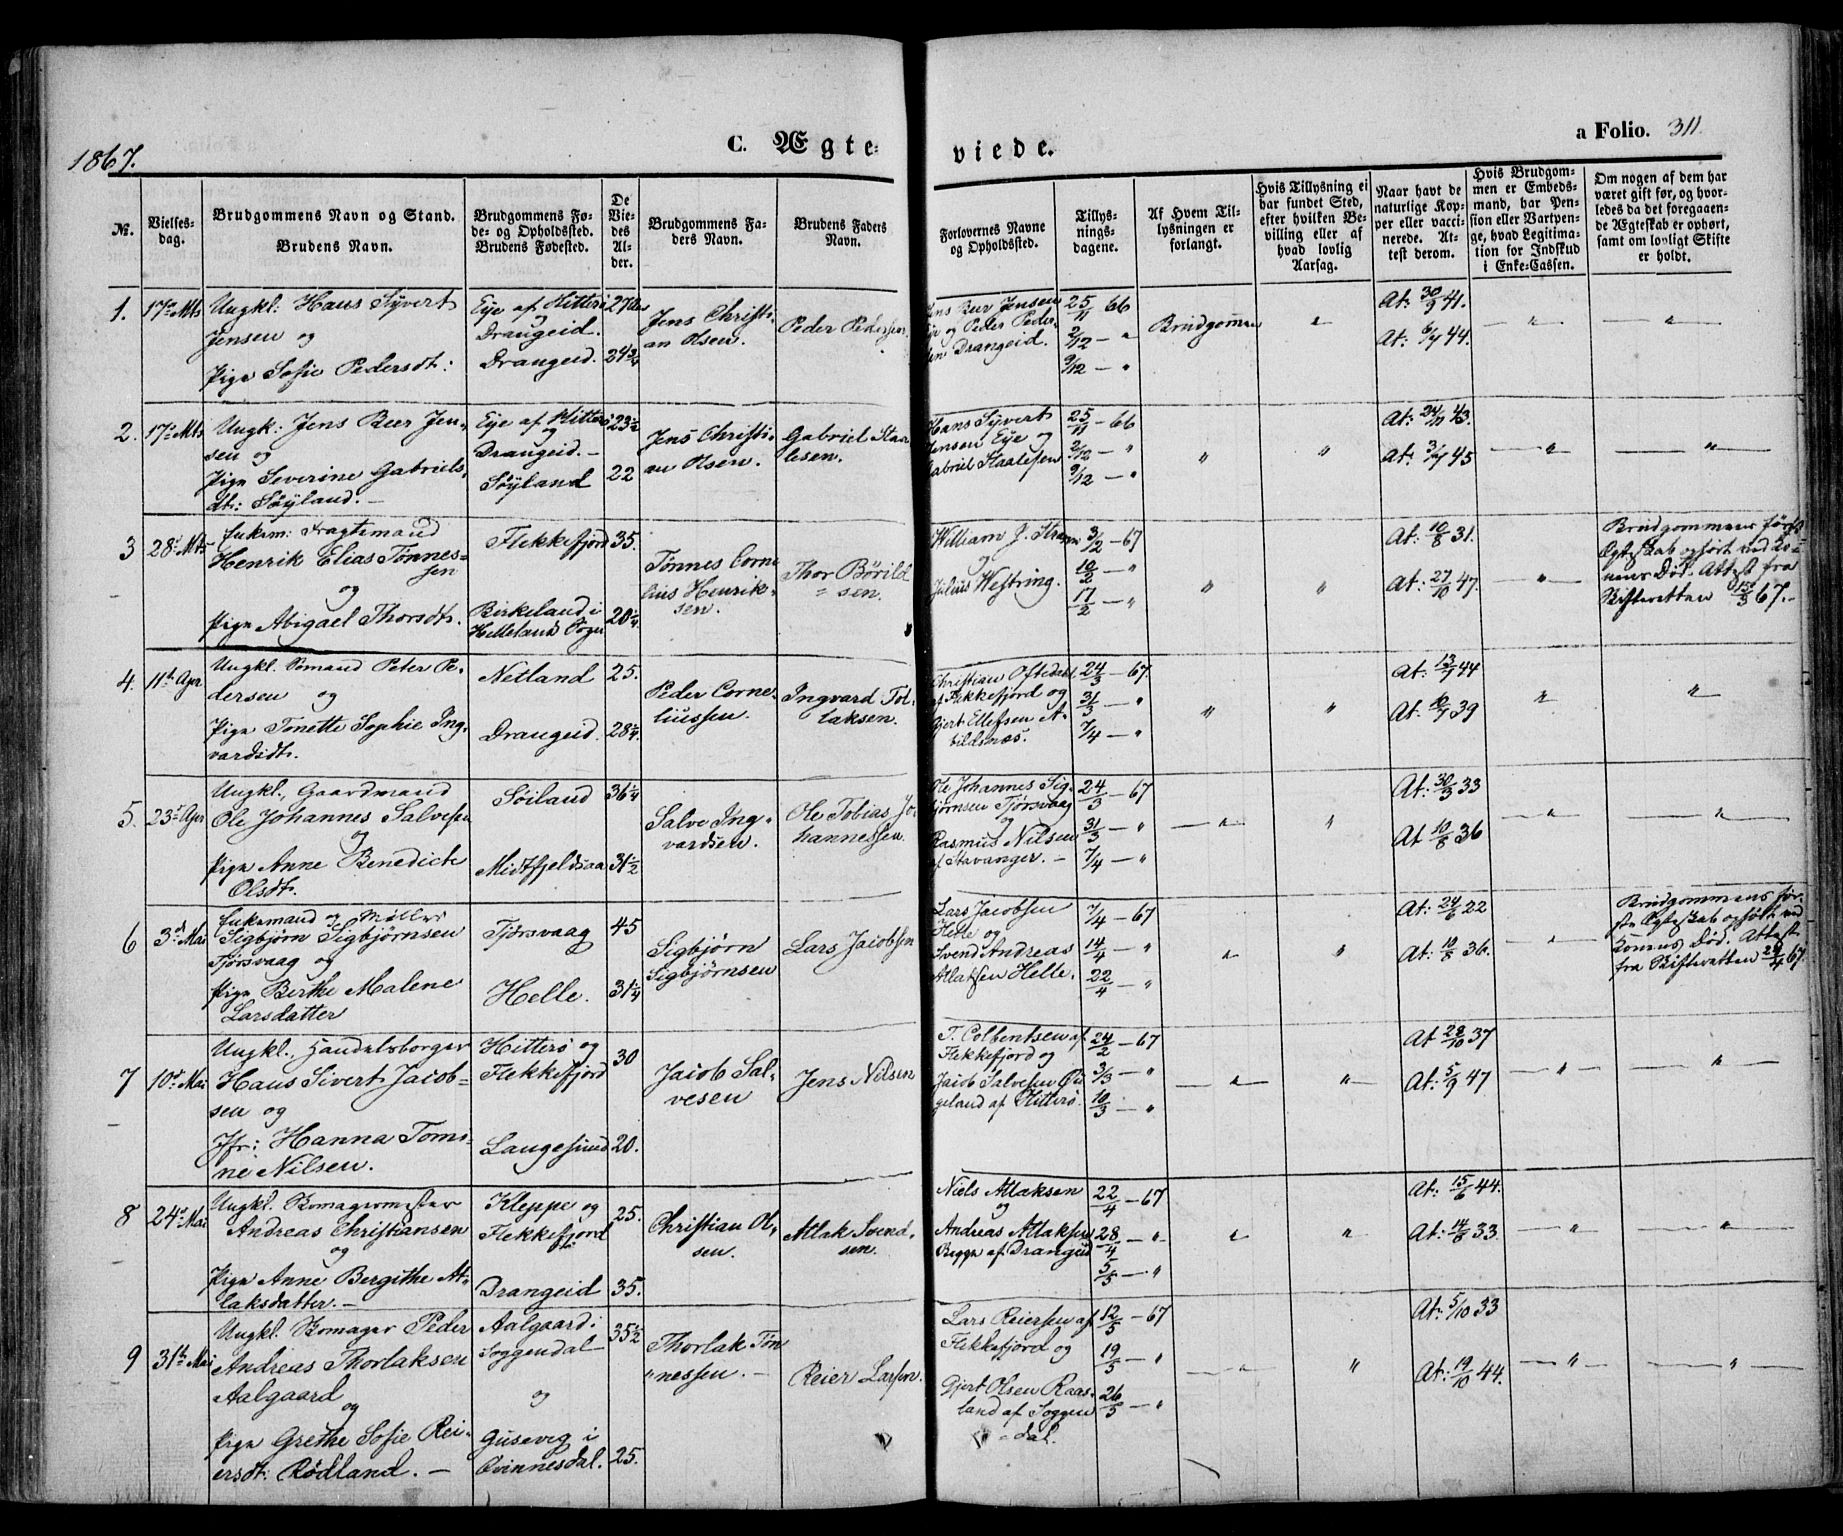 1867.
C. Ægte-
viede.
a Folio. 311.
№.
Vielses-
dag.
Brudgommens Navn og Stand.
Brudens Navn.
Brudgommens Fø-
de- og Opholdssted.
Brudens Fødested.
De
Vie-
des
Al-
der.
Brudgommens Fa-
ders Navn.
Brudens Faders
Navn.
Forlovernes Navne
og Opholdssted.
Tillys-
nings-
dagene.
Af Hvem Til-
lysningen er
forlangt.
Hvis Tillysning ei
har fundet Sted,
efter hvilken Be-
villing eller af
hvad lovlig
Aarsag.
Naar havt de
naturlige Kop-
per eller vacci-
nerede. At-
test derom.
Hvis Brudgom-
men er Embeds-
mand, har Pen-
sion eller Vartpen-
ge, hvad Legitima-
tion for Indskud
i Enke-Cassen.
Om nogen af dem har
været gift før, og hvor-
ledes da det foregaaen-
de Ægteskab er ophørt,
samt om lovligt Skifte
er holdt.
1. 17de Mts
Ungkl. Hans Syvert
Jensen og
Pige Sofie Pedersdt:
Eye af Hitterö
Drangeid.
Drangeid.
24 3/4
Jens Christi-
an Olsen.
Peder Pedersen
Jens Beer Jensen
Eye og Peder Peder-
sen Drangeid.
25/11 - 66
2/12 - "
9/12 - "
Brudgommen
"
At: 30/9 41.
At: 6/7 44.
"
"
2. 17de Mts
Ungk: Jens Beer Jen-
sen og
Pige Severine Gabriels-
dt: Söyland. -
Eye af Hitterö
og
Drangeid. -
Söyland
23 1/2
22
Jens Christi-
an Olsen.
Gabriel Staa-
lesen.
Hans Syvert
Jensen Eye og
Gabriel Staalesen
25/11 - 66
2/12 - "
9/12 - "
"
"
At: 24/11 43.
At: 3/7 45
"
"
3 28de Mts
Enkem: Fragtemand
Henrik Elias Tönnes-
sen
og
Pige Abigael Thorsdt.
Flekkefjord
Birkeland i
Helleland Sogn
35.
20 1/4
Tönnes Corne
lius Henrik-
sen.
Thor Börild
sen.
William J. Strann
og
Julius Westring.
3/2 - 67
10/2 - "
17/2 - "
"
"
At: 10/8 31.
At: 27/10 47.
"
Brudgommens första
Ægteskab ophört ved Ko-
nens Död. Attest fra
Skifteretten 15/3 67. -
4. 11te Apr
Ungkl. Sömand Peter Pe-
dersen og
Pige Tonette Sophie Ing-
vardsdt.
Netland
Drangeid.
25.
28 1/4
Peder Corne-
liussen.
Ingvard Tol-
laksen.
Christian Oftedahl
af Flekkefjord og
Gjert Ellefsen A-
bildsnæs.
24/3 - 67.
31/3 - "
7/4 - "
"
"
At: 13/7 44
At: 10/7 39
"
"
5. 23de Apr
Ungkl., Gaardmand
Ole Johannes Salvesen
og
Pige Anne Benedicte
Olsdt.
Söiland
Midtfjeldsaa
36 1/4
31 1/2
Salve Ing-
vardsen.
Ole Tobias Jo-
hannessen.
Ole Johannes Sig-
björnsen Tjörsvaag
og
Rasmus Nilsen
af Stavanger. -
24/3 - 67
31/3 - "
7/4 - "
"
"
At: 30/3 33
At 10/8 36
"
"
6 3de Mai
Enkemand og Möller
Sigbjörn Sigbjörnsen
Tjörsvaag og
Pige Berthe Malene
Larsdatter
Tjörsvaag
Helle.
45
31 1/4
Sigbjörn
Sigbjörnsen
Lars Jacobsen
Lars Jacobsen
Helle og
Svend Andreas
Atlaksen Helle.
7/4 - 67
14/4 - "
22/4 - "
"
"
At: 24/6 22
At: 10/8 36.
"
Brudgommens för-
ste Ægteskab ophört ved
Konens Död. Attest
fra Skifteretten 29/4 67.
7 10de Mai
Ungkl., Handelsborger
Hans Sivert Jacob-
sen og
Jfr: Hanna Toms-
ine Nilsen.
Hitterö og
Flekkefjord
Langesund
30
20.
Jacob Sal-
vesen
Jens Nilsen
T. Colbentsen af
Flekkefjord og
Jacob Salvesen Öi-
geland af Hitterö.
24/2 - 67
3/3 - "
10/3 - "
"
"
At 28/10 37
At: 5/9 47
"
"
8 24de Mai
Ungkl. Skomagermester
Andreas Christiansen
og
Pige Anne Bergithe At-
laksdatter. -
Kleppe og
Flekkefjord
Drangeid
25.
35.
Christian Ol-
sen.
Atlak Svend-
sen.
Niels Atlaksen
og
Andreas Atlaksen
Begge af Drangeid
22/4 - 67
28/4 - "
5/5 - "
"
"
At: 15/6 44.
At: 14/8 33.
"
"
9 31te Mai
Ungkl. Skomager Peder
Andreas Thorlaksen
Aalgaard
og
Pige Grethe Sofie Rei-
ersdt: Rödland. -
Aalgaard i
Soggendal
og
Gusevig i
Qvinnesdal.
35 1/2
25.
Thorlak Tön
nessen. -
Reier Larsen.
Lars Reiersen af
Flekkefjord og
Gjert Olsen Raas-
land af Soggen
dal.
12/5 - 67
19/5 - "
26/5 - "
"
"
At: 5/10 33
At: 19/10 44.
"
"